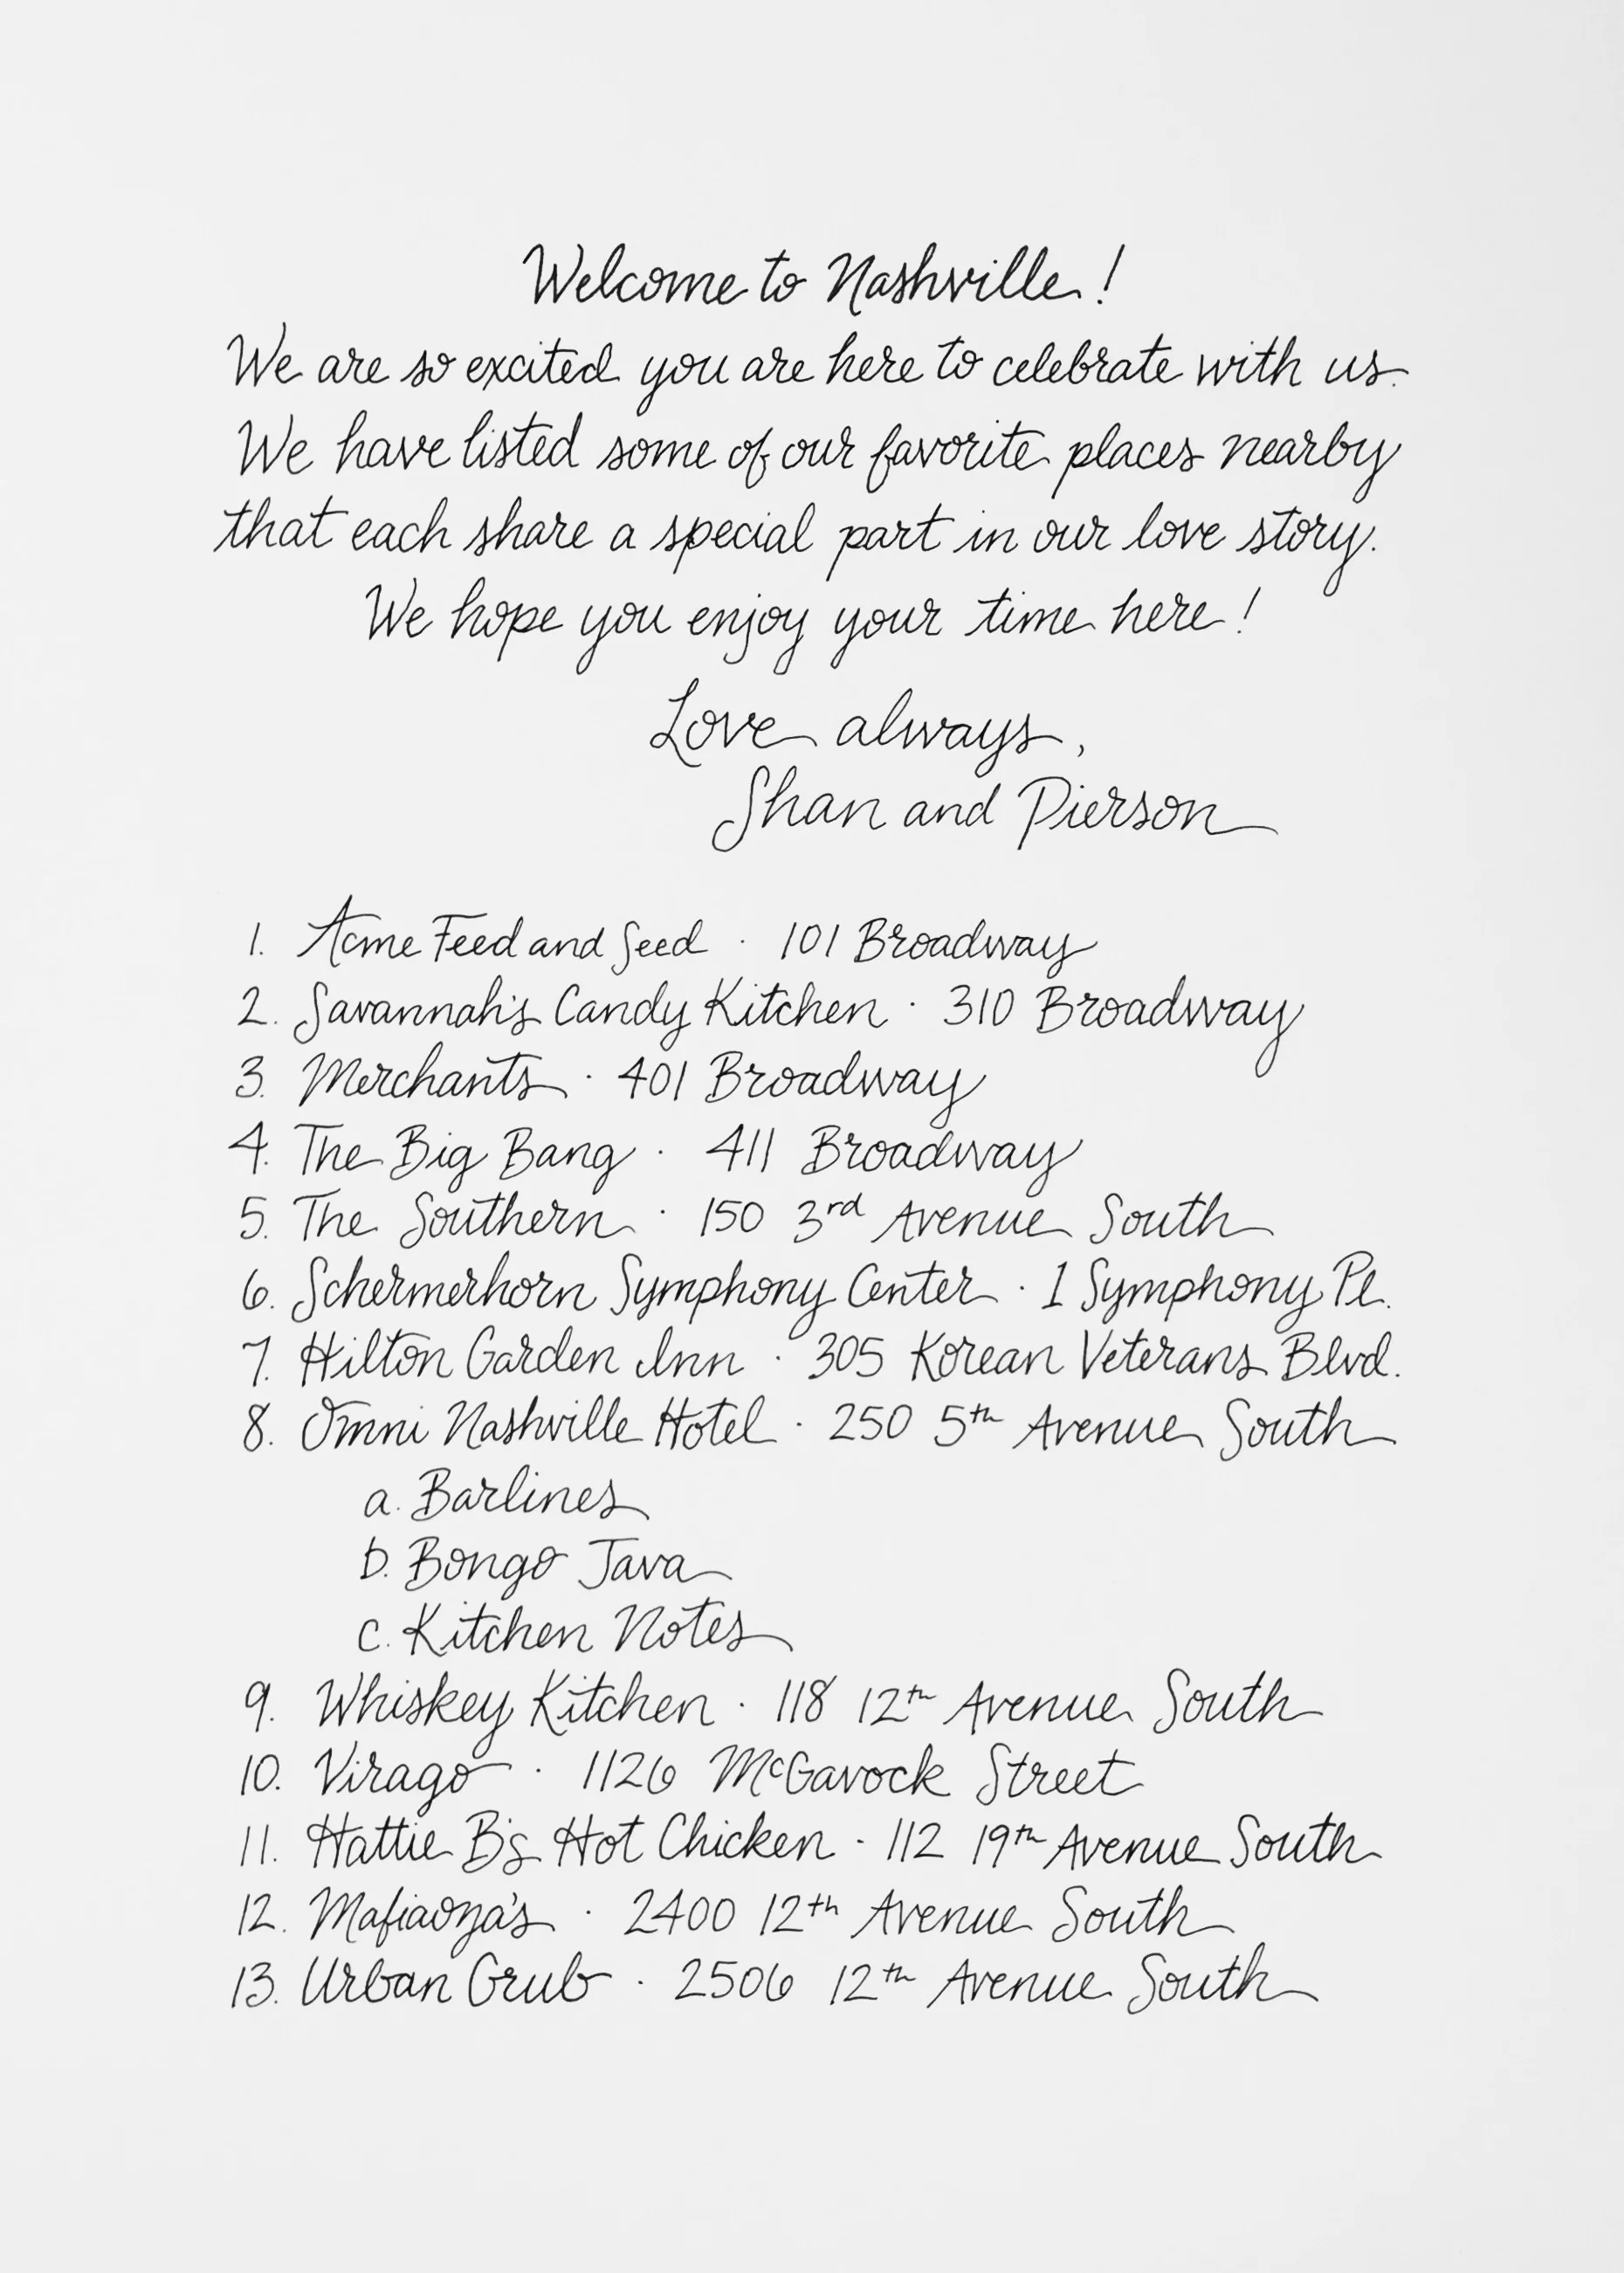 Welcome to Nashville!
We are so excited you are here to celebrate with us.
We have listed some of our favorite places nearby
that each share a special part in our love story.
We hope you enjoy your time here!
Love always,
Shan and Pierson
1. Acme Feed and Seed · 101 Broadway
2. Savannah's Candy Kitchen · 310 Broadway
3. Merchants · 401 Broadway
4. The Big Bang · 411 Broadway
5. The Southern · 150 3rd Avenue South
6. Schermerhorn Symphony Center · 1 Symphony Pl.
7. Hilton Garden Inn · 305 Korean Veterans Blvd.
8. Omni Nashville Hotel · 250 5th Avenue South
a. Barlines
b. Bongo Java
c. Kitchen Notes
9. Whiskey Kitchen · 118 12th Avenue South
10. Virago · 1126 McGavock Street
11. Hattie B's Hot Chicken · 112 19th Avenue South
12. Mafiaoza's · 2400 12th Avenue South
13. Urban Grub · 2506 12th Avenue South